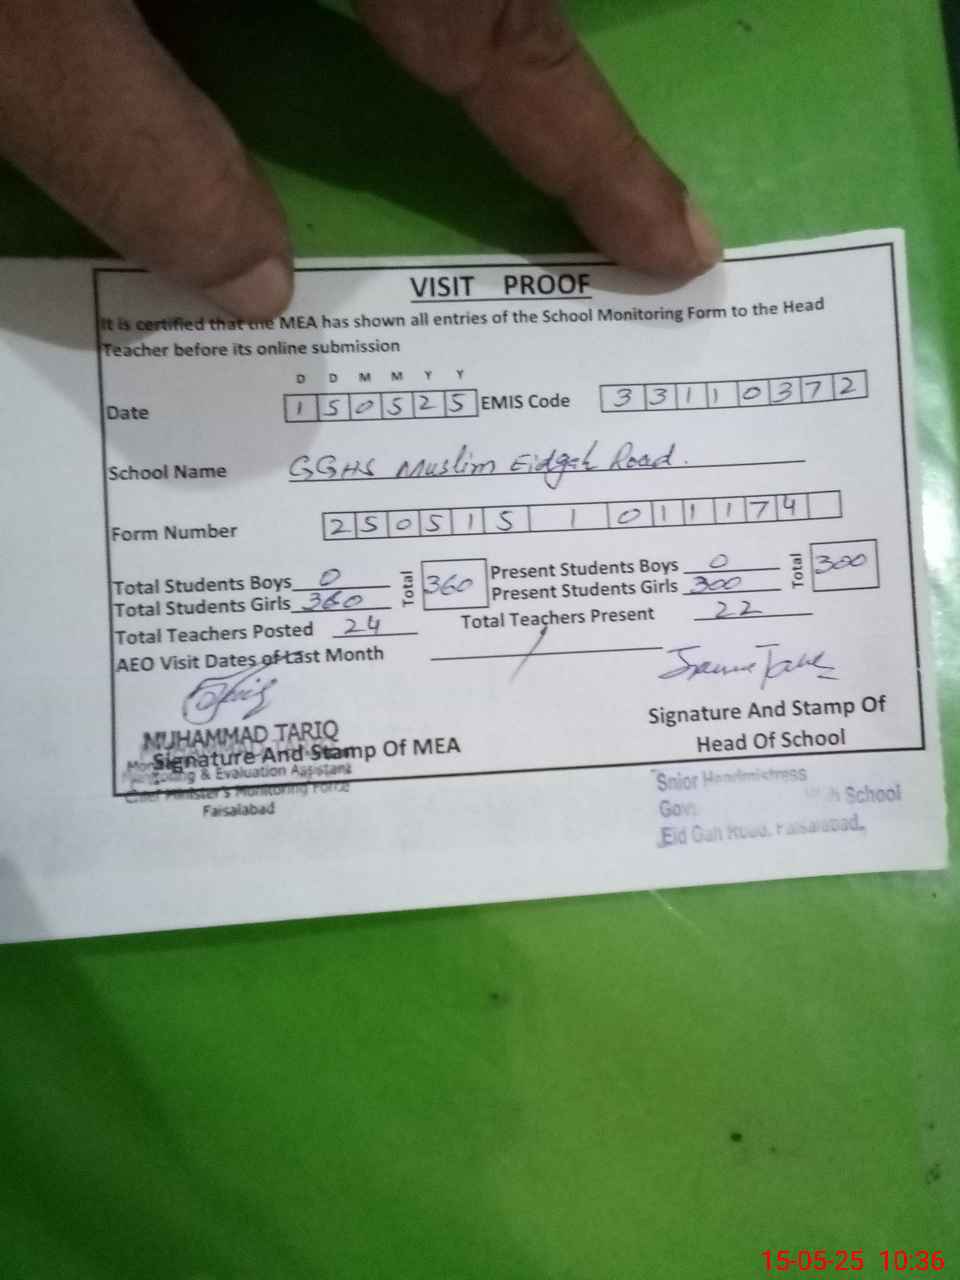 VISIT PROOF
It is certified that the MEA has shown all entries of the School Monitoring Form to the Head
Teacher before its online submission
D D M M Y Y
Date 1 5 0 5 2 5 EMIS Code 3 3 1 1 0 3 7 2
School Name GGHS Muslim Eidgah Road.
Form Number 2 5 0 5 1 5 1 0 1 1 1 7 4
Total Students Boys 0 Total 360 Present Students Boys 0 Total 300
Total Students Girls 360 Present Students Girls 300
Total Teachers Posted 24 Total Teachers Present 22
AEO Visit Dates of Last Month
MUHAMMAD TARIQ
Signature And Stamp Of MEA
Monitoring & Evaluation Assistant
Chief Minister's Monitoring Force
Faisalabad
Signature And Stamp Of
Head Of School
Snior Headmistress
Gov. School
Eid Gah Road, Faisalabad.
15-05-25 10:36